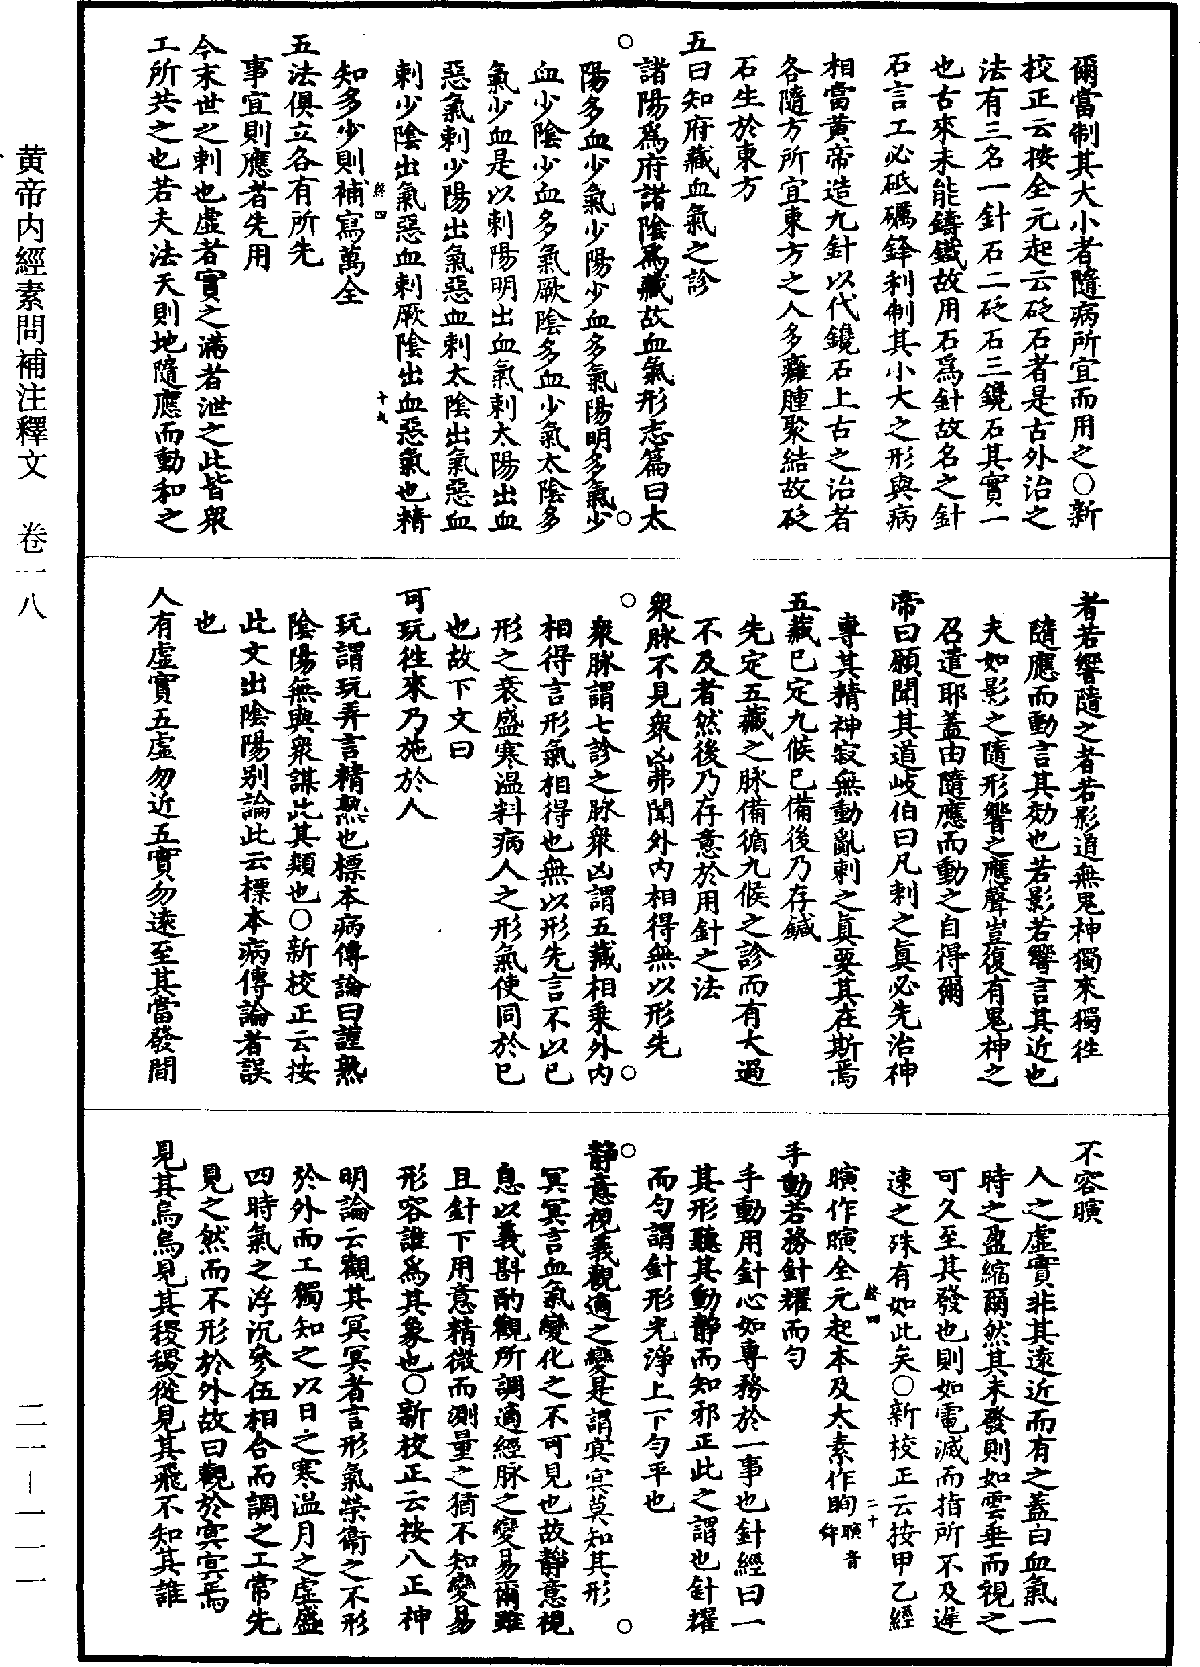 爾當制其大小者隨病所宜而用之○新
挍正云按全元起云砭石者是古外治之
法有三名一針石二砭石三鑱石其實一
也古來未能鑄鐵故用石爲針故名之針
石言工必砥礪鋒利制其小大之形與病
相當黄帝造九針以代鑱石上古之治者
各隨方所宜東方之人多癰腫聚結故砭
石生於東方
五曰知府藏血氣之診
諸陽爲府諸陰爲藏故血氣形志篇曰太
陽多血少氣少陽少血多氣陽明多氣少
血少陰少血多氣厥陰多血少氣太陰多
氣少血是以刺陽明出血氣刺太陽出血
惡氣刺少陽出氣惡血刺太陰出氣惡血
刺少陰出氣惡血刺厥陰出血惡氣也精
知多少則補寫萬全
終四
十九
五法俱立各有所先
事宜則應者先用
今末世之刺也虚者實之滿者泄之此皆衆
工所共之也若夫法天則地隨應而動和之
者若響隨之者若影道無鬼神獨來獨往
隨應而動言其効也若影若響言其近也
夫如影之隨形響之應聲豈復有鬼神之
召遣耶蓋由隨應而動之自得爾
帝曰願聞其道岐伯曰凡刺之眞必先治神
專其精神寂無動亂刺之眞要其在斯焉
五藏已定九候已備後乃存鍼
先定五藏之脉備循九候之診而有大過
不及者然後乃存意於用針之法
衆脉不見衆凶弗聞外内相得無以形先
衆脉謂七診之脉衆凶謂五藏相乗外内
相得言形氣相得也無以形先言不以已
形之衰盛寒温料病人之形氣使同於已
也故下文曰
可玩往來乃施於人
玩謂玩弄言精熟也標本病傳論曰謹熟
陰陽無與衆謀此其類也○新校正云按
此文出陰陽别論此云標本病傳論者誤
也
人有虚實五虚勿近五實勿遠至其當發間
不容瞚
人之虚實非其遠近而有之蓋自血氣一
時之盈縮爾然其未發則如雲垂而視之
可久至其發也則如電滅而指所不及遲
速之殊有如此矣○新校正云按甲乙經
瞚作瞑全元起本及太素作眴瞚音舜
終四
二十
手動若務針耀而匀
手動用針心如專務於一事也針經曰一
其形聽其動静而知邪正此之謂也針耀
而匀謂針形光淨上下匀平也
静意視義觀適之變是謂冥冥莫知其形
冥冥言血氣變化之不可見也故静意視
息以義斟酌觀所調適經脉之變易爾雖
且針下用意精微而測量之猶不知變易
形容誰爲其象也○新校正云按八正神
明論云觀其冥冥者言形氣榮衞之不形
於外而工獨知之以日之寒温月之虚盛
四時氣之浮沉參伍相合而調之工常先
見之然而不形於外故曰觀於冥冥焉
見其烏烏見其稷稷從見其飛不知其誰
黄帝内經素問補注釋文　卷一八
二一—一一一